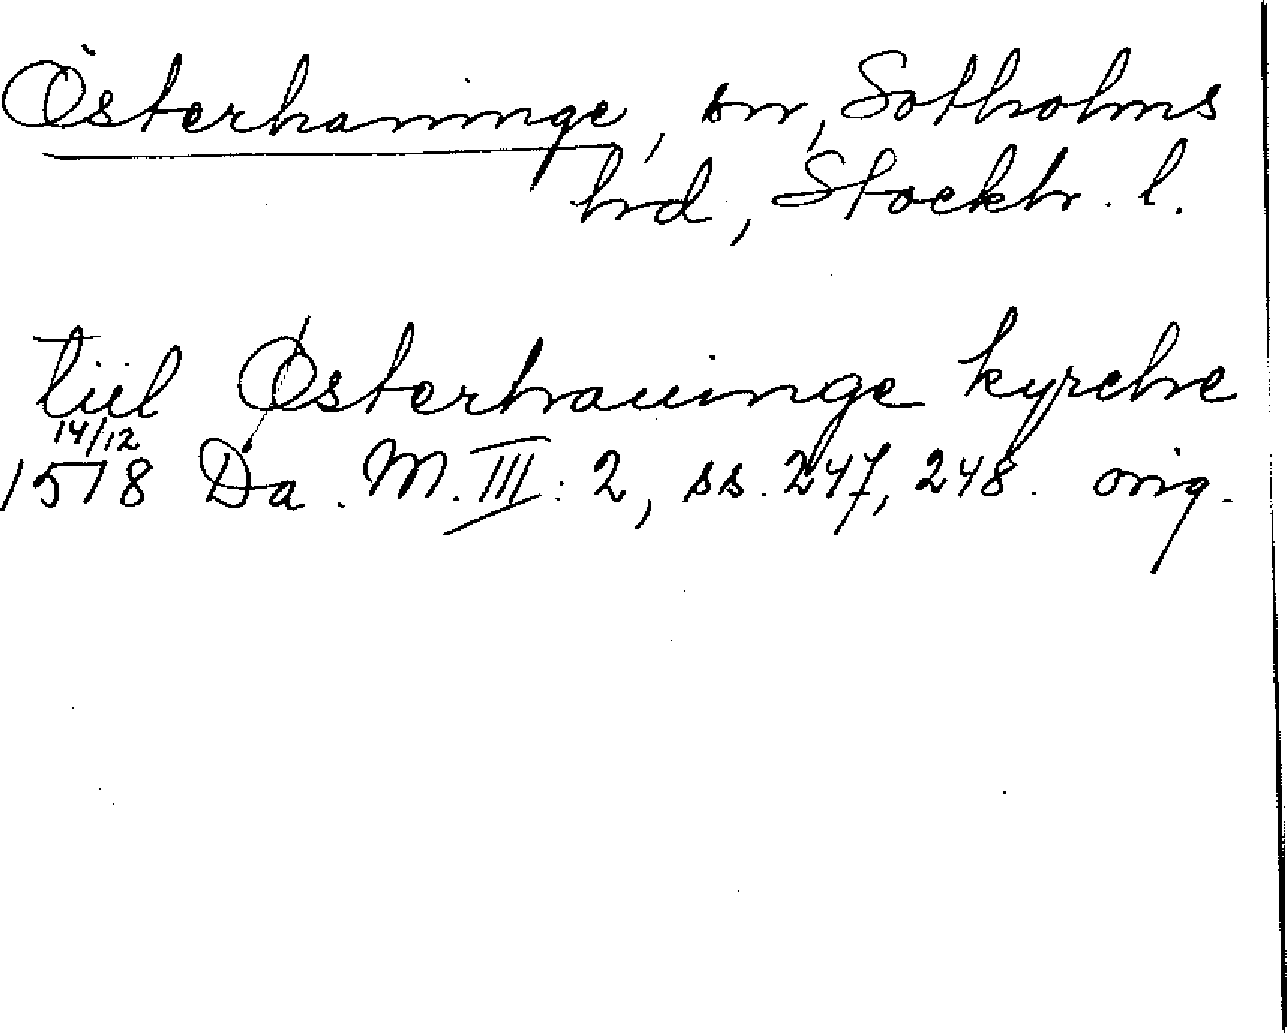 Österhaninge, sn, Sotholms
hrd, Stockh. l.
tiil Østerhauinge kyrche
14/12
1578 Da. M. III: 2, ss. 247, 248. orig.